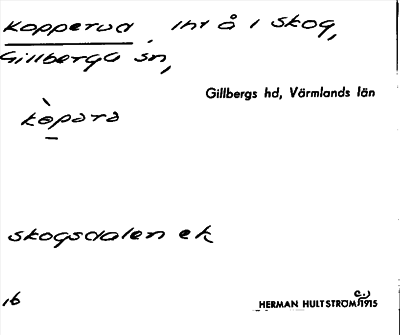 Kopperud. Int å i skog,
Gillberga sn,
Gillbergs hd, Värmlands län
kò̱para
skogsdalen ek
16 HERMAN HULTSTRÖM 1915